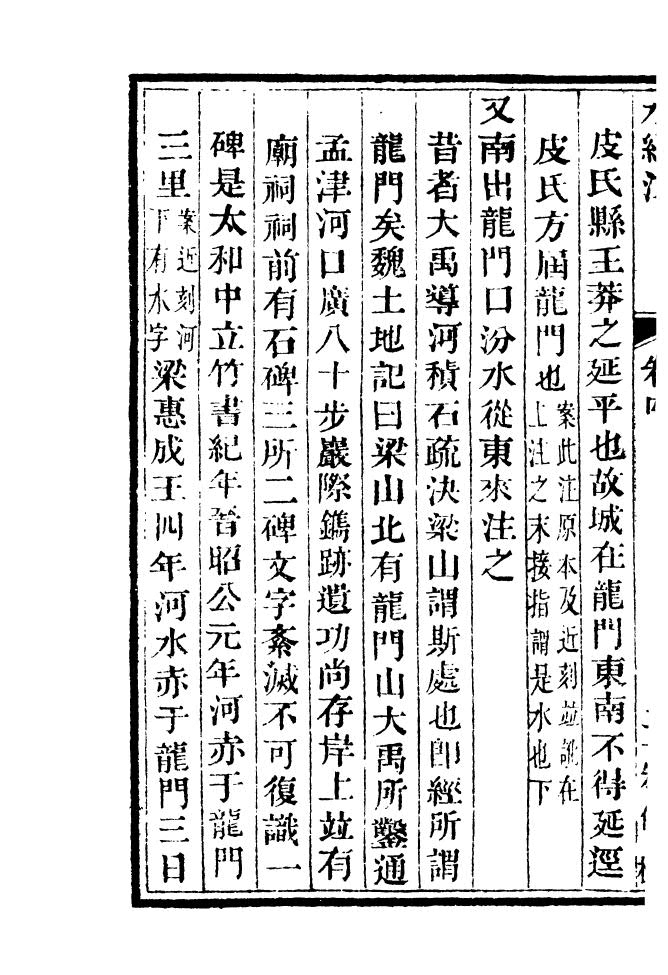 水經注 卷四
皮氏縣王莽之延平也故城在龍門東南不得延逕
皮氏方屆龍門也案此注原本及近刻並訛在上注之末接指謂是水也下
又南出龍門口汾水從東來注之
昔者大禹導河積石疏決梁山謂斯處也卽經所謂
龍門矣魏土地記曰梁山北有龍門山大禹所鑿通
孟津河口廣八十步巖際鐫跡遺功尚存岸上竝有
廟祠祠前有石碑三所二碑文字紊滅不可復識一
碑是太和中立竹書紀年晉昭公元年河赤于龍門
三里案近刻河下有水字梁惠成王四年河水赤于龍門三日